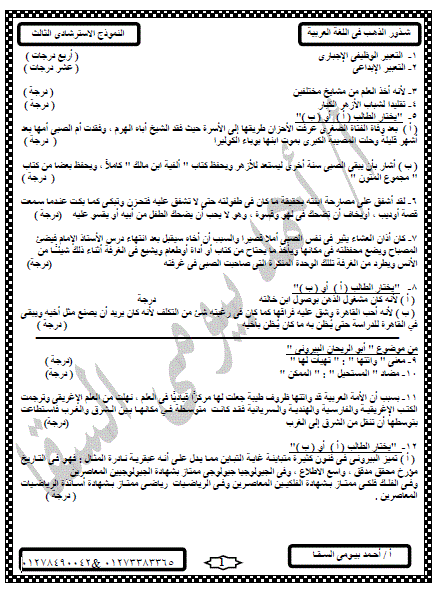 شذور الذهب فى اللغة العربية
النموذج الاسترشادى الثالث
١- التعبير الوظيفى الإجبارى ( أربع درجات )
٢- التعبير الإبداعى ( عشر درجات )
٣- لأنه أخذ العلم من مشايخ مختلفين ( درجة )
٤- تقليدا لشباب الأزهر الكبار ( درجة )
٥- "يختار الطالب ( أ ) أو ( ب )"
( أ ) بعد وفاة الفتاة الصغرى عرفت الأحزان طريقها إلى الأسرة حيث فقد الشيخ أباه الهرم ، وفقدت أم الصبى أمها بعد
أشهر قليلة وحلت المصيبة الكبرى بموت ابنها بوباء الكوليرا
( ب ) أشار بأن يبقى الصبى سنة أخرى ليستعد للأزهر ويحفظ كتاب " ألفية ابن مالك " كاملاً ، ويحفظ بعضا من كتاب
" مجموع المتون "
٦- لقد أشفق على مصارحة ابنته بحقيقة ما كان فى طفولته حتى لا تشفق عليه فتحزن وتبكى كما بكت عندما سمعت
قصة أوديب ، أويخاف أن تضحك فى لهو وقسوة ، وهو لا يحب أن يضحك الطفل من أبيه أو يقسو عليه (درجة)
٧- كان أذان العشاء يثير فى نفس الصبى أملا قصيرا والسبب أن أخاه سيقبل بعد انتهاء درس الأستاذ الإمام فيضئ
المصباح ويضع محفظته فى مكانها ويأخذ ما يحتاج من كتاب أو أداة أوطعام ويشيع فى الغرفة أثناء ذلك شيئا من
الأنس ويطرد من الغرفة تلك الوحدة المنكرة التى صاحبت الصبى فى غرفته
٨- "يختار الطالب ( أ ) أو ( ب )"
( أ ) لأنه كان مشغول الذهن بوصول ابن خالته درجة
( ب ) لأنه أحب القاهرة وشق عليه فراقها كما كان فى رغبته شئ من التكلف لأنه كان يريد أن يصنع مثل أخيه ويبقى
فى القاهرة للدراسة حتى يُظن به ما كان يُظن بأخيه ( درجة )
من موضوع " أبو الريحان البيرونى "
٩- معنى " واتتها " : " تهيأت لها " (درجة)
١٠- مضاد " المستحيل " : " الممكن " (درجة)
١١- بسبب أن الأمة العربية قد واتتها ظروف طيبة جعلت لها مركزاً قيادياً فى العلم ، نهلت من العلم الإغريقى وترجمت
الكتب الإغريقية والفارسية والهندية والسريانية فقد كانت متوسطة فى مكانها بين الشرق والغرب فاستطاعت
بتوسطها أن تنقل من الشرق إلى الغرب (درجة)
١٢- "يختار الطالب ( أ ) أو ( ب )"
( أ ) تميز البيرونى فى فنون كثيرة متباينة غاية التباين مما يدل على أنه عبقرية نادرة المثال : فهو فى التاريخ
مؤرخ محقق مدقق ، واسع الاطلاع ، وفى الجيولوجيا جيولوجى ممتاز بشهادة الجيولوجيين المعاصرين
وفى الفلك فلكى ممتاز بشهادة الفلكيين المعاصرين وفى الرياضيات رياضى ممتاز بشهادة أساتذة الرياضيات
المعاصرين . ( درجة )
أ / أحمد بيومى السقا
1
٠١٢٧٣٣٨٣٣٦٥ & ٠١٢٧٨٤٩٠٠٤٢
أ/ أحمد بيومى السقا